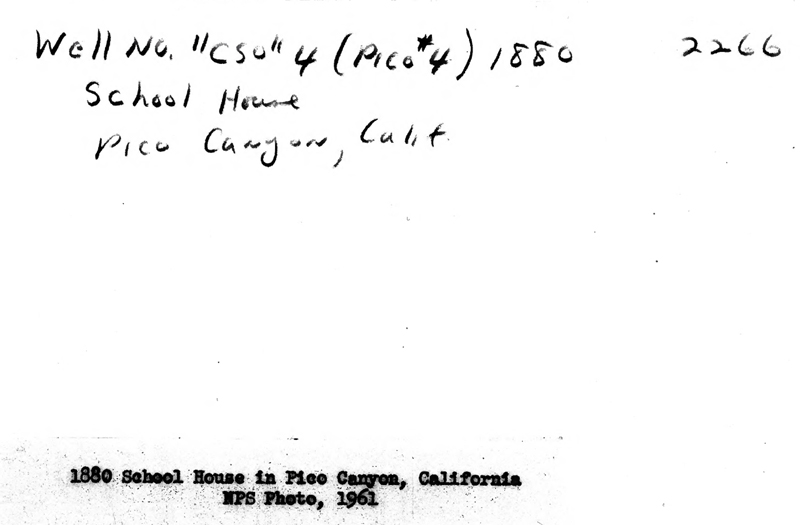 Well No. "CSO" 4 (Pico #4) 1880 2266
School House
Pico Canyon, Calif.
1880 School House in Pico Canyon, California
NPS Photo, 1961